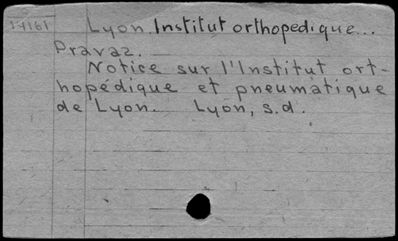 Lyon. Institut orthopedique...
Pravaz.
Notice sur l'Institut ort-
hopédique et pneumatique
de Lyon. Lyon, s.d.